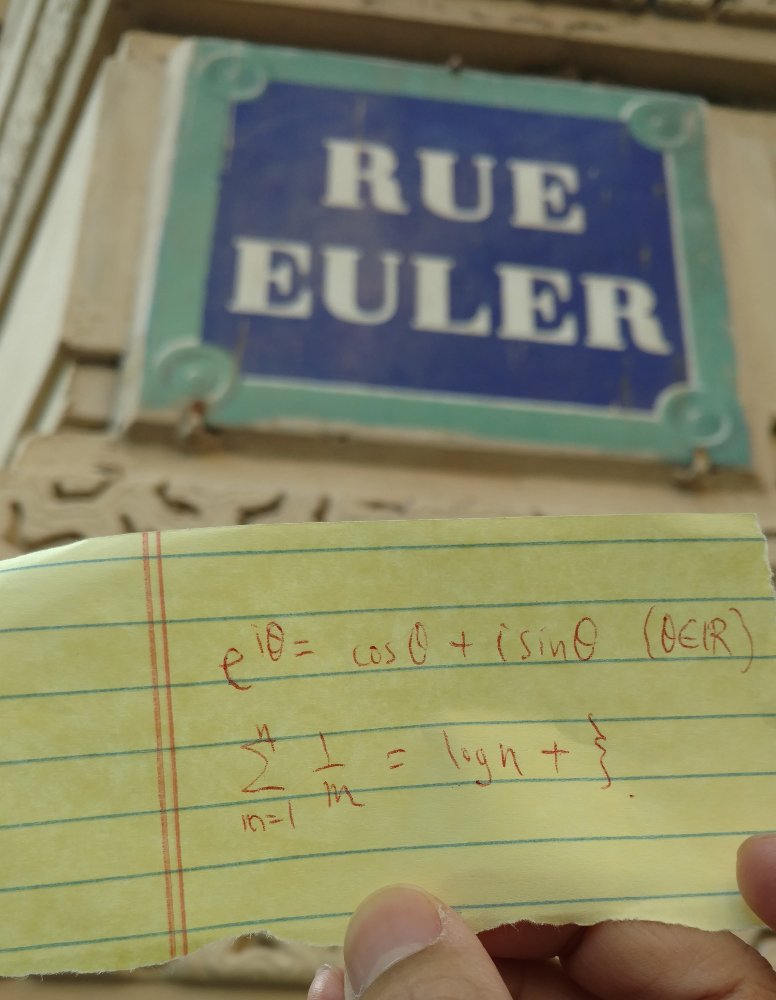 RUE
EULER
e^{iθ} = cos θ + i sin θ (θ∈ℝ)
\sum_{m=1}^{n} \frac{1}{m} = log n + }.